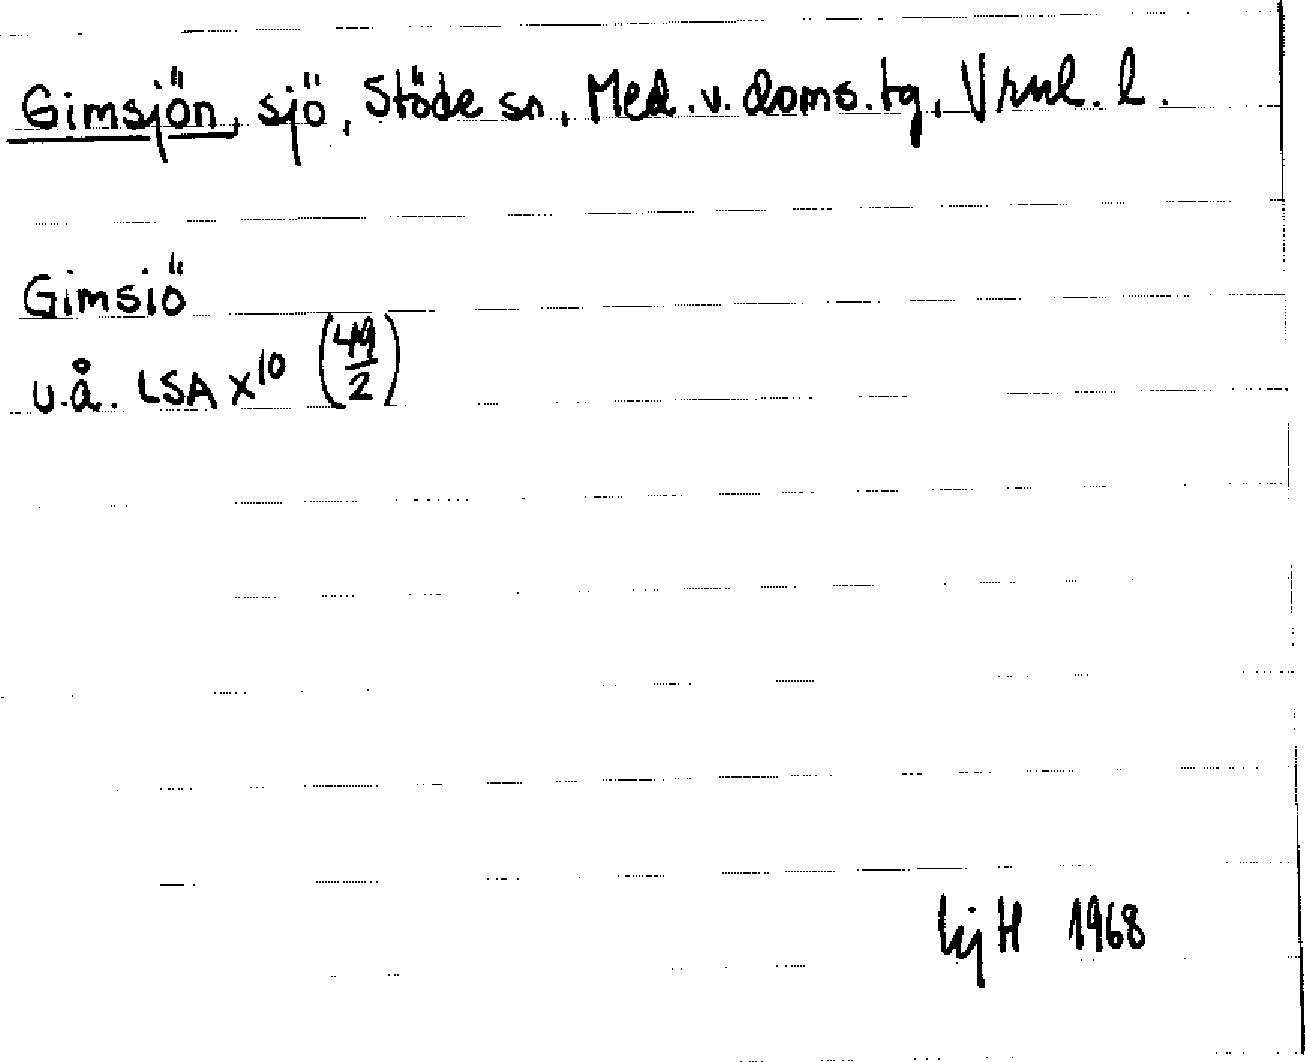 Gimsjön, sjö, Stöde sn, Med. v. doms. tg, Vrnl. l.
Gimsiö
u.å. LSA x10 (49/2)
1968